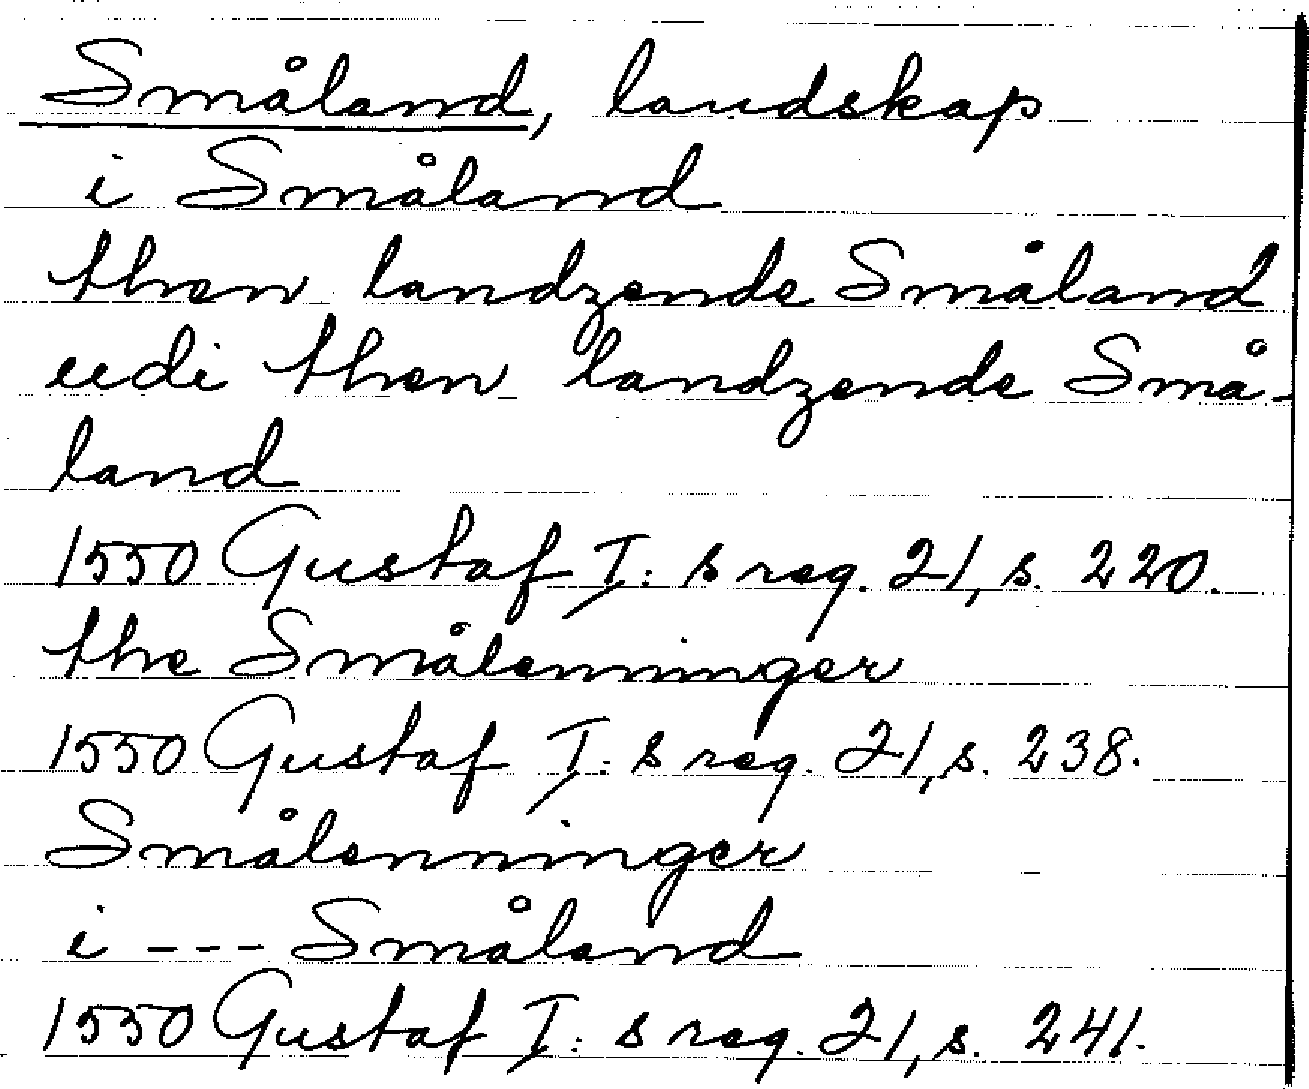 Småland, landskap
i Småland
then landzende Småland
udi then landzende Små-
land
1550 Gustaf I:s reg. 21, s. 220.
the Smålenninger
1550 Gustaf I:s reg. 21, s. 238.
Smålenninger
i --- Småland
1550 Gustaf I:s reg. 21, s. 241.